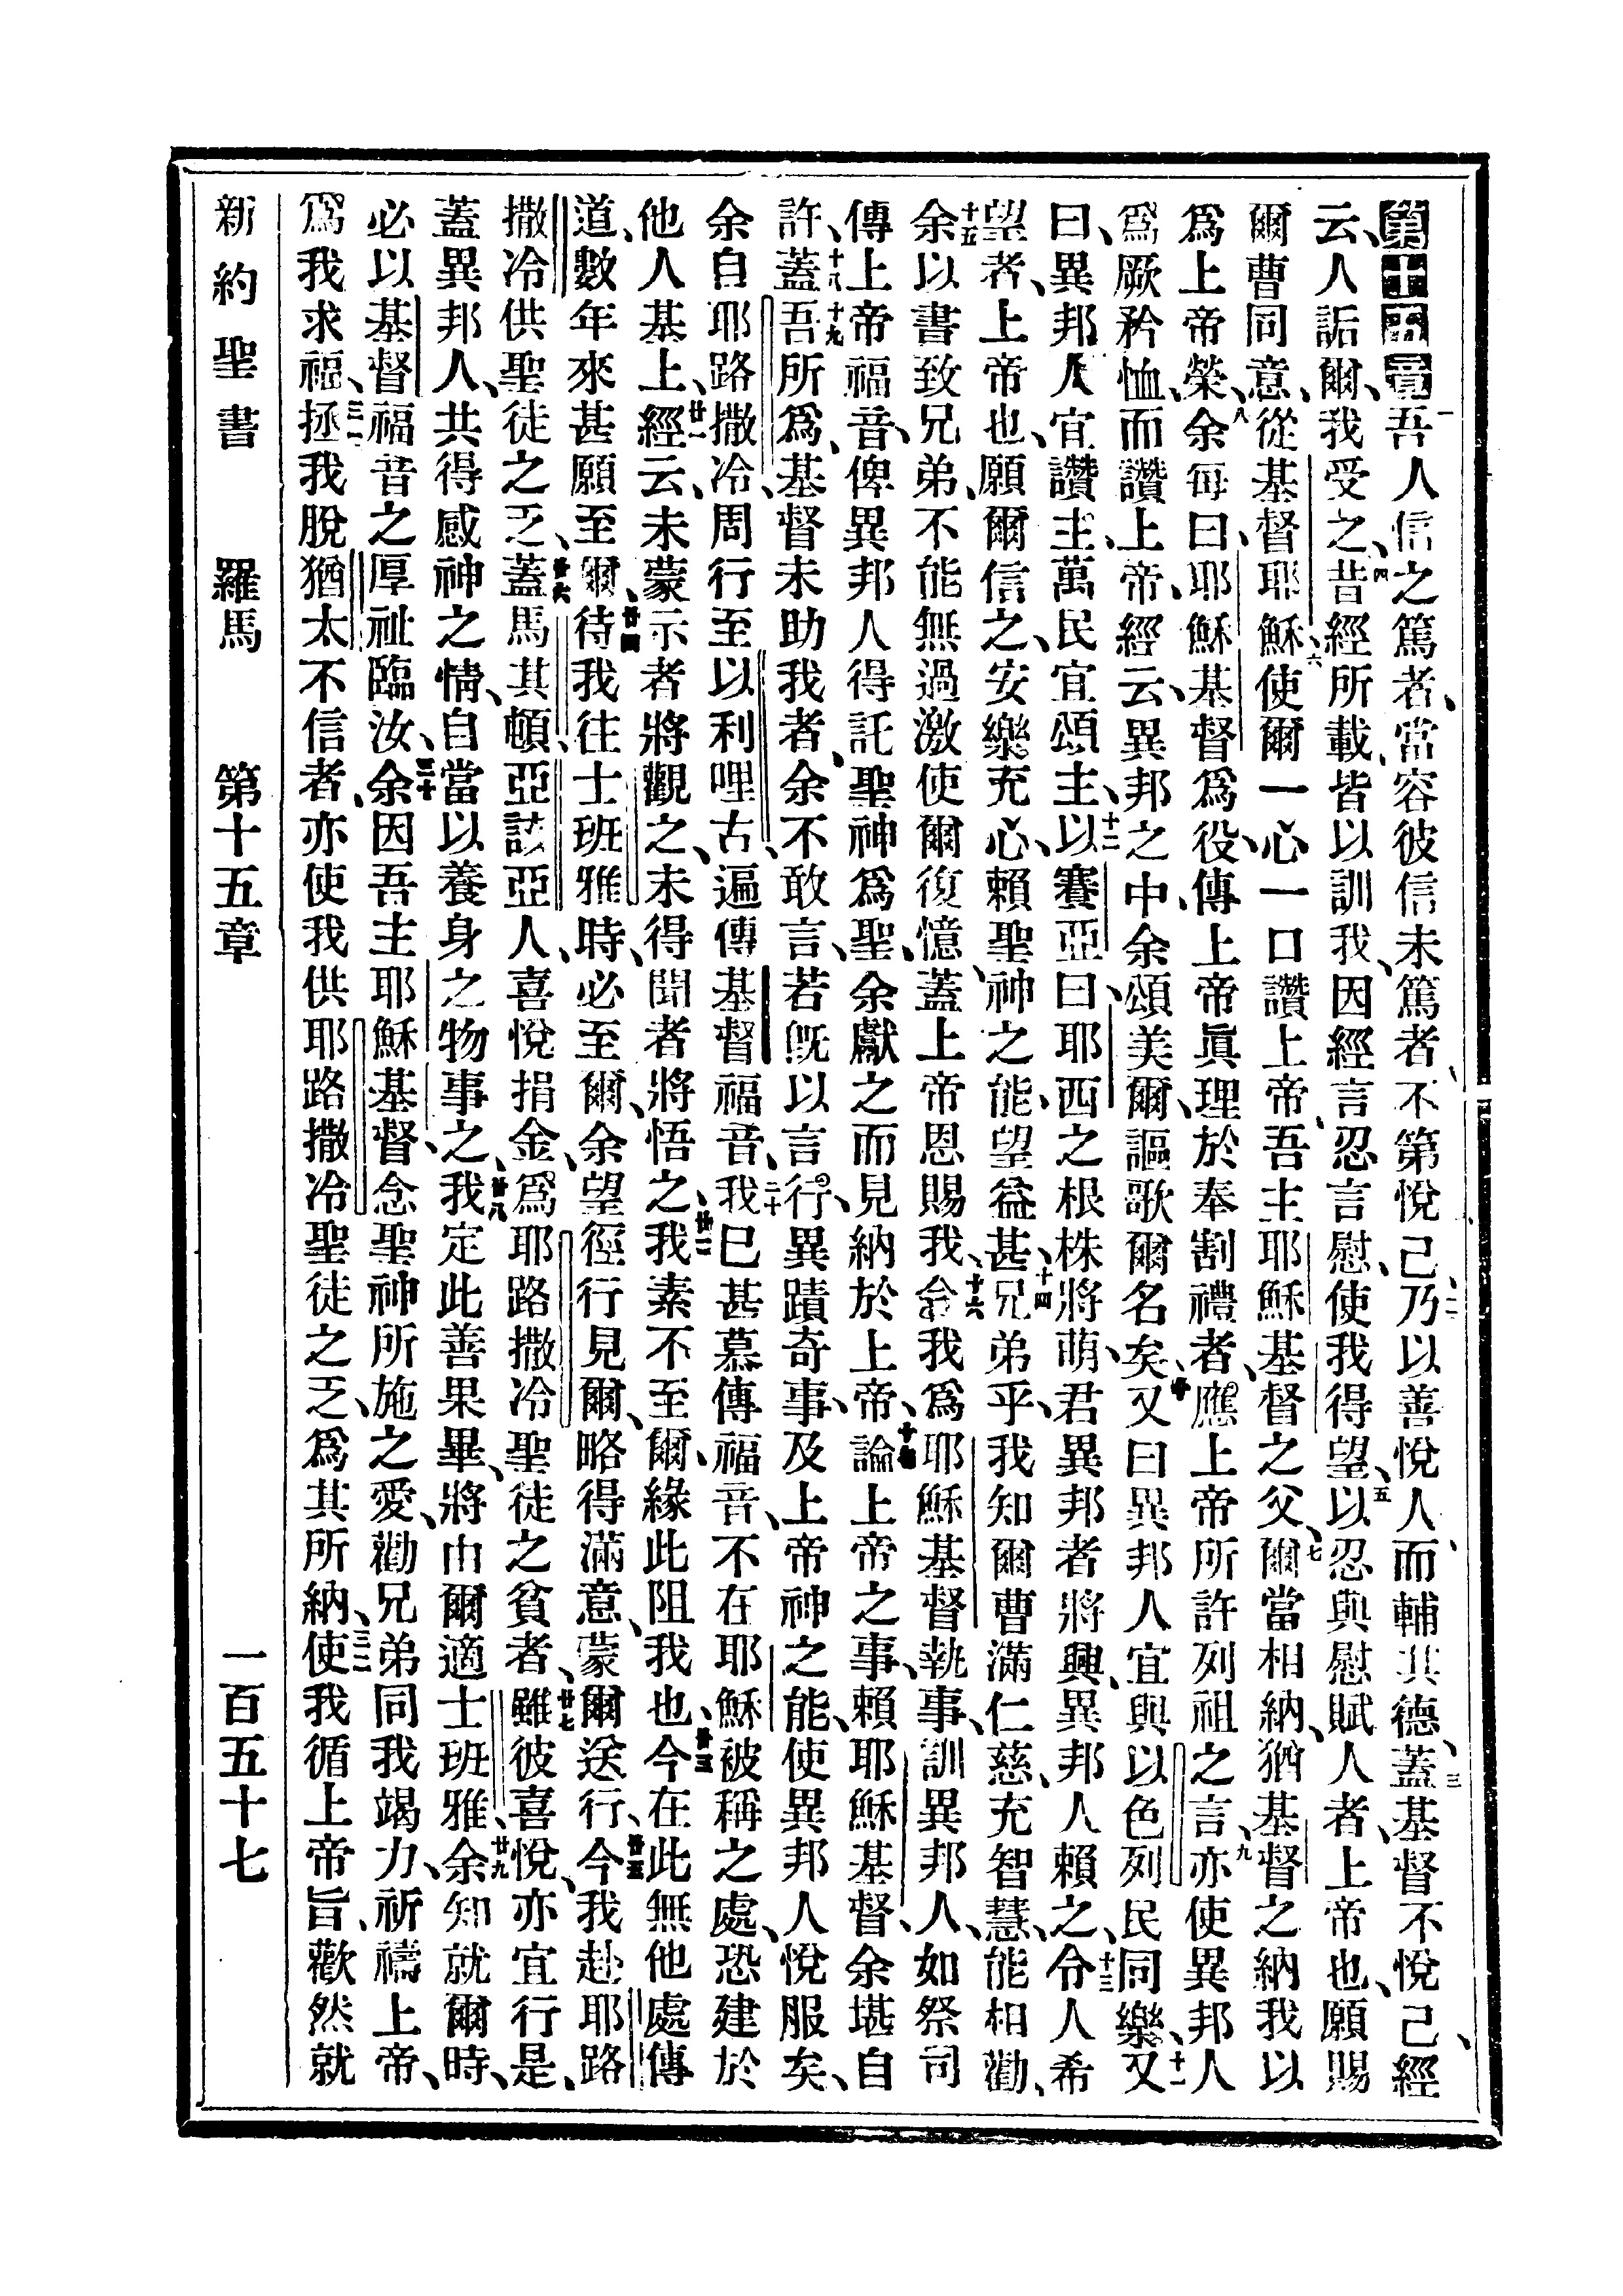 第十五章一吾人信之篤者、當容彼信未篤者、不第悅己、二乃以善悅人、而輔其德、三蓋基督不悅己、經
云、人詬爾、我受之、四昔經所載、皆以訓我、因經言忍言慰、使我得望、五以忍與慰賦人者、上帝也、願賜
爾曹同意、從基督耶穌、六使爾一心一口讚上帝、吾主耶穌基督之父、七爾當相納、猶基督之納我以
爲上帝榮、八余每曰、耶穌基督爲役、傳上帝眞理於奉割禮者、應上帝所許列祖之言、九亦使異邦人
爲厥矜恤而讚上帝、經云、異邦之中、余頌美爾、謳歌爾名矣、十又曰異邦人宜與以色列民同樂、十一又
曰、異邦人宜讚主、萬民宜頌主、十二以賽亞曰、耶西之根株將萌、君異邦者將興、異邦人賴之、十三令人希
望者、上帝也、願爾信之、安樂充心、賴聖神之能、望益甚、十四兄弟乎、我知爾曹滿仁慈、充智慧、能相勸、
十五余以書致兄弟、不能無過激、使爾復憶、蓋上帝恩賜我、十六俞我爲耶穌基督執事、訓異邦人、如祭司
傳上帝福音、俾異邦人得託聖神爲聖、余獻之而見納於上帝、十七論上帝之事、賴耶穌基督、余堪自
許、十八蓋十九吾所爲、基督未助我者、余不敢言、若旣以言行、異蹟奇事、及上帝神之能、使異邦人悅服矣、
余自耶路撒冷、周行至以利哩古、遍傳基督福音、二十我已甚慕傳福音、不在耶穌被稱之處、恐建於
他人基上、廿一經云、未蒙示者將觀之、未得聞者將悟之、廿二我素不至爾、緣此阻我也、廿三今在此無他處傳
道、數年來甚願至爾、廿四待我往士班雅時、必至爾、余望徑行見爾、略得滿意、蒙爾送行、廿五今我赴耶路
撒冷供聖徒之乏、廿六蓋馬其頓、亞該亞人、喜悅捐金、爲耶路撒冷聖徒之貧者、廿七雖彼喜悅、亦宜行是、
蓋異邦人、共得感神之情、自當以養身之物事之、廿八我定此善果畢、將由爾適士班雅、廿九余知就爾時、
必以基督福音之厚祉臨汝、三十余因吾主耶穌基督、念聖神所施之愛、勸兄弟同我竭力、祈禱上帝、
爲我求福、三一拯我脫猶太不信者、亦使我供耶路撒冷聖徒之乏、爲其所納、三二使我循上帝旨、歡然就
新約聖書 羅馬 第十五章 一百五十七